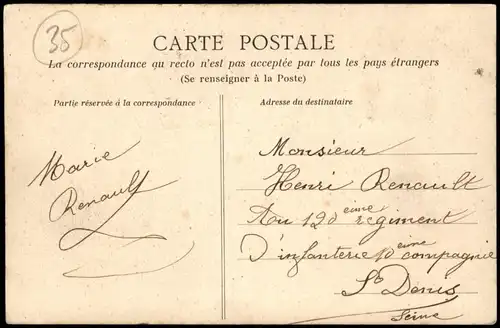 35
CARTE POSTALE
La correspondance au recto n'est pas acceptée par tous les pays étrangers
(Se renseigner à la Poste)
Partie réservée à la correspondance
Adresse du destinataire
Marie
Renault
Monsieur
Henri Renault
Au 120eme régiment
D'infanterie 10eme compagnie
St Denis
Seine